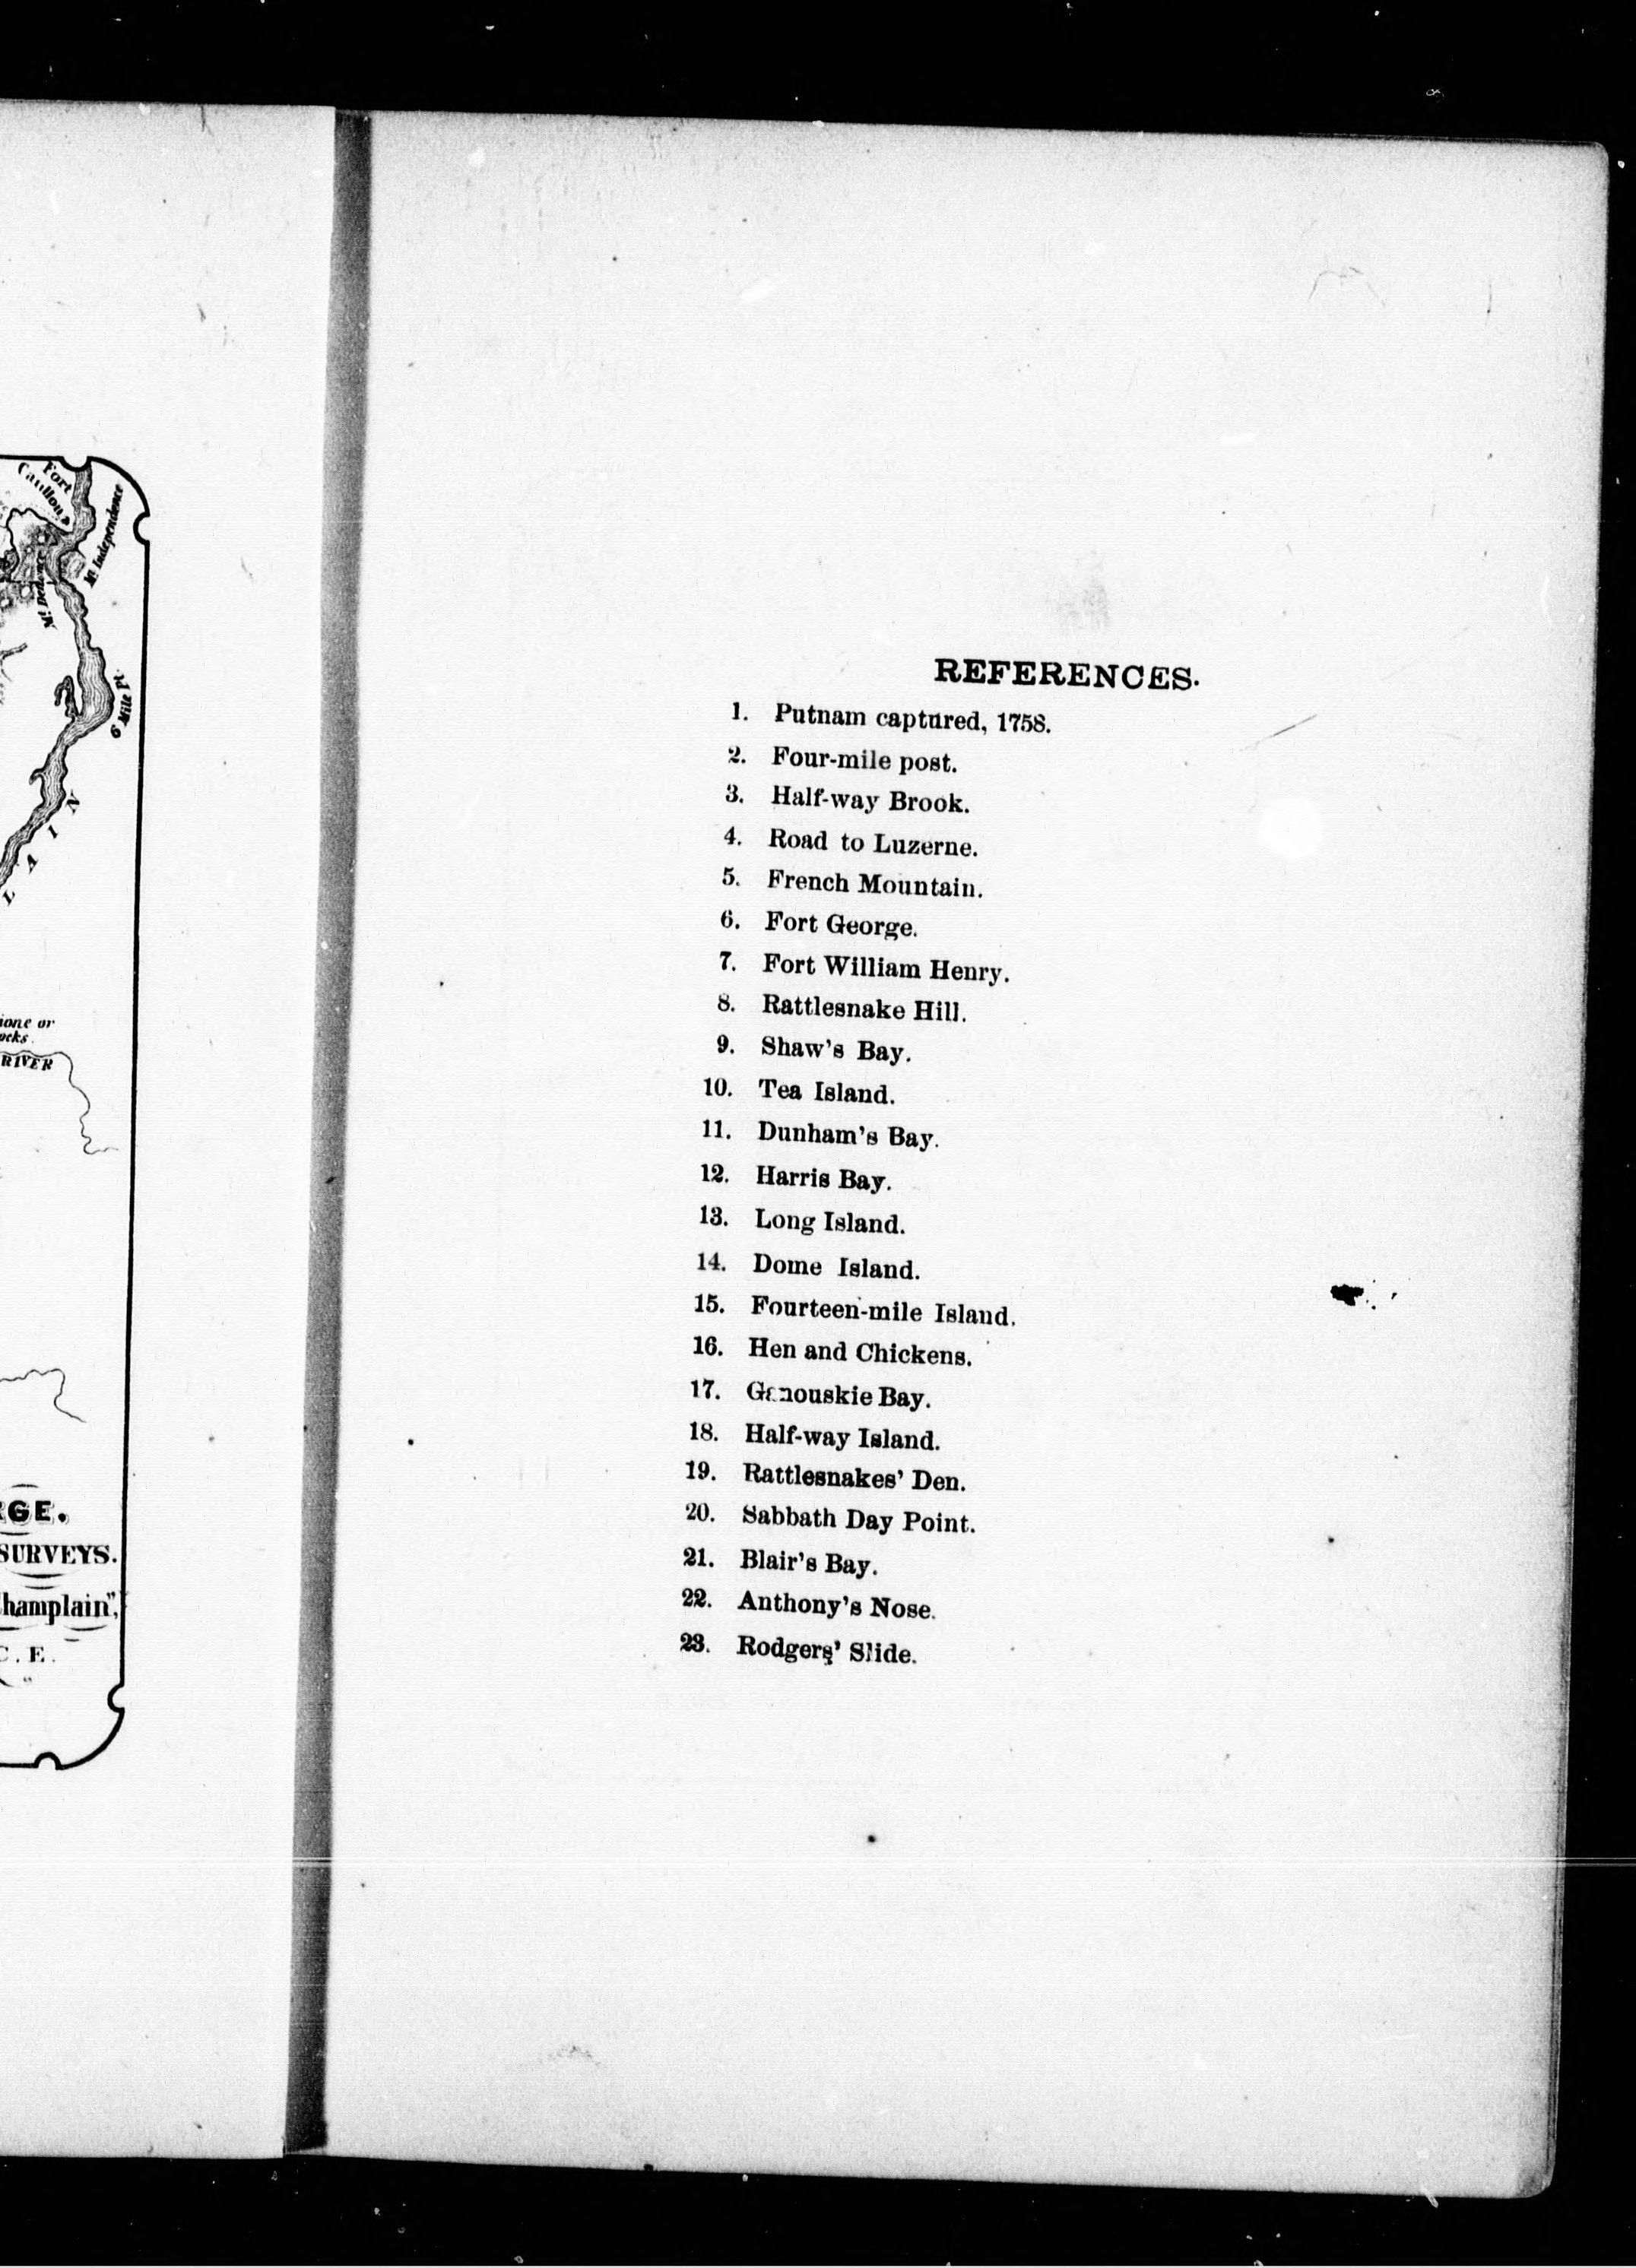 Fort
Carillon
Mt Independence
Mt. Defiance
6 Mile Pt.
L A I N
or
RIVER
SURVEYS.
C. E.
REFERENCES.
1. Putnam captured, 1758.
2. Four-mile post.
3. Half-way Brook.
4. Road to Luzerne.
5. French Mountain.
6. Fort George.
7. Fort William Henry.
8. Rattlesnake Hill.
9. Shaw's Bay.
10. Tea Island.
11. Dunham's Bay.
12. Harris Bay.
13. Long Island.
14. Dome Island.
15. Fourteen-mile Island.
16. Hen and Chickens.
17. Ganouskie Bay.
18. Half-way Island.
19. Rattlesnakes' Den.
20. Sabbath Day Point.
21. Blair's Bay.
22. Anthony's Nose.
23. Rodgers' Slide.